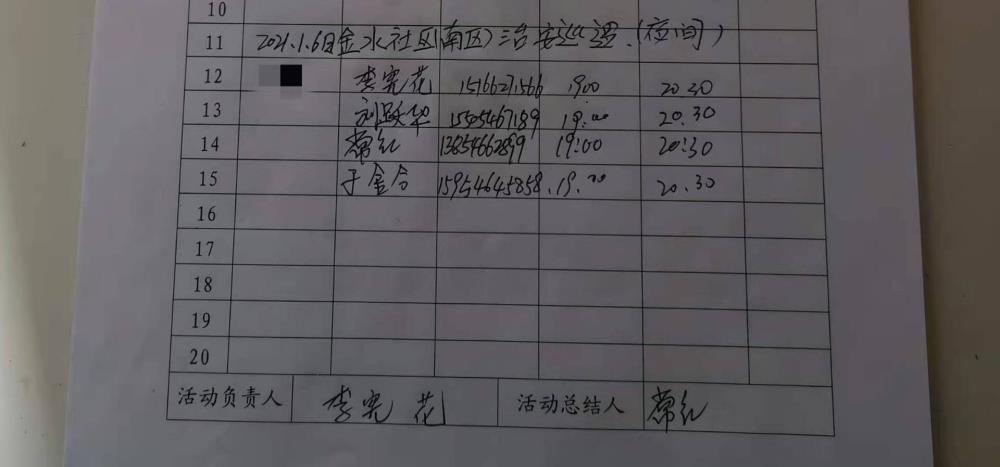 10
11 2021.1.6日金水社区(南区)治安巡逻.(夜间)
12 李宪花 15166271566 1900 2030
13 刘跃华 15505467189 19:00 20.30
14 常红 13854662899 19:00 20:30
15 于金合 15954645858. 19.00 20.30
16
17
18
19
20
活动负责人 李宪花 活动总结人 常红